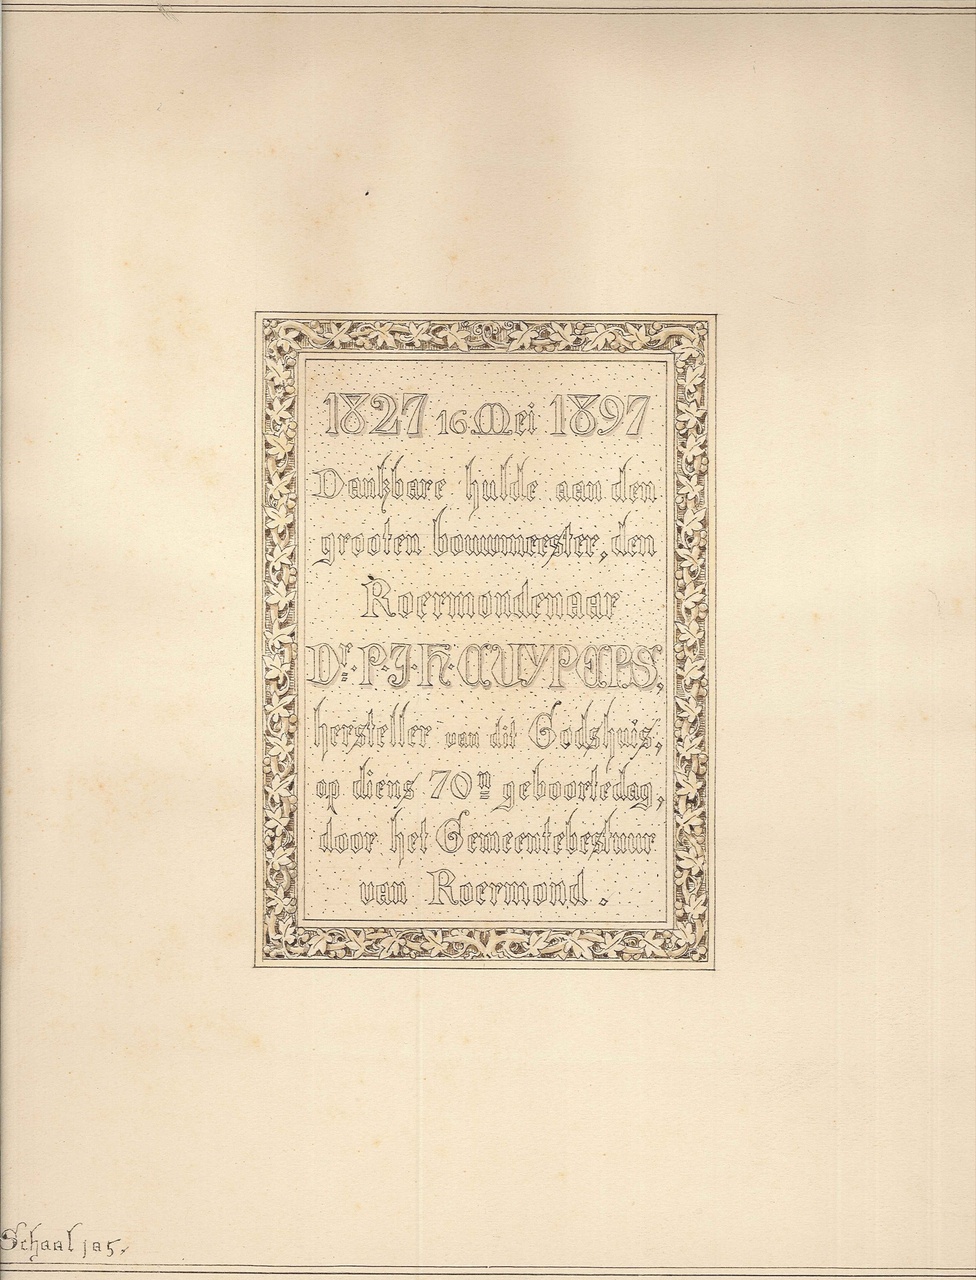 1827 16 Mei 1897
Dankbare hulde aan den
grooten bouwmeester, den
Roermondenaar
Dr. P. J. H. CUYPERS,
hersteller van dit Godshuis,
op diens 70n geboortedag,
door het Gemeentebestuur
van Roermond.
Schaal 1 à 5.